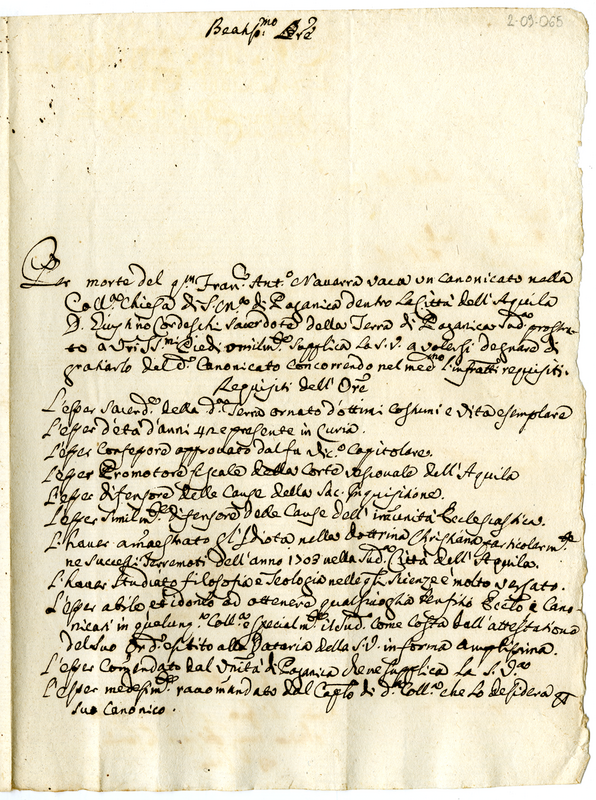 2-09-065
Beatiss.mo Pre
Per morte del q.m Fran.co Ant.o Navarra vaca un canonicato nella
Coll.ta Chiesa di S. di Paganica dentro la Città dell'Aquila
D. Cordeschi Sacerdote della Terra di Paganica Sud.a prostra-
to a V.ri SS.mi Piedi umilm.te supplica la S.V. a volersi degnare di
gratiarlo del d.o Canonicato concorrendo nel med.mo l'infratti requisiti.
Requisiti dell'Ore
L'esser Sacerd.e della d.a Terra ornato d'ottimi costumi e vita esemplare
L'esser d'età d'anni 42 e presente in Curia.
L'esser Confessore approvato dal fu Vic.o Capitolare.
L'esser Promotore fiscale della Corte vescovale dell'Aquila
L'esser difensore delle Cause della Sac. Inquisitione.
L'esser similm.te difensore delle Cause dell'immunità Ecclesiastica.
L'haver ammaestrato gl'Idiota nella dottrina Christiana particolarm.te
ne successi Terremoti dell'anno 1703 nella Sud.a Città dell'Aquila.
L'haver studiato filosofia e Teologia nelle q.li scienze è molto versato.
L'esser abile et idoneo ad ottenere qualsivoglia Benefitio Eccl.o e Cano-
nicati in quelunq. Coll.ta e specialm.te il sud.o come costa dall'attestatione
del suo Ord.o esibito alla Dataria della S.V. in forma amplissima.
L'esser Comendato dal Unità di Paganica che ne supplica la S.V.
L'esser medesim.te raccomandato dal Cap.lo di d.a Coll.ta che lo desidera p
suo canonico.